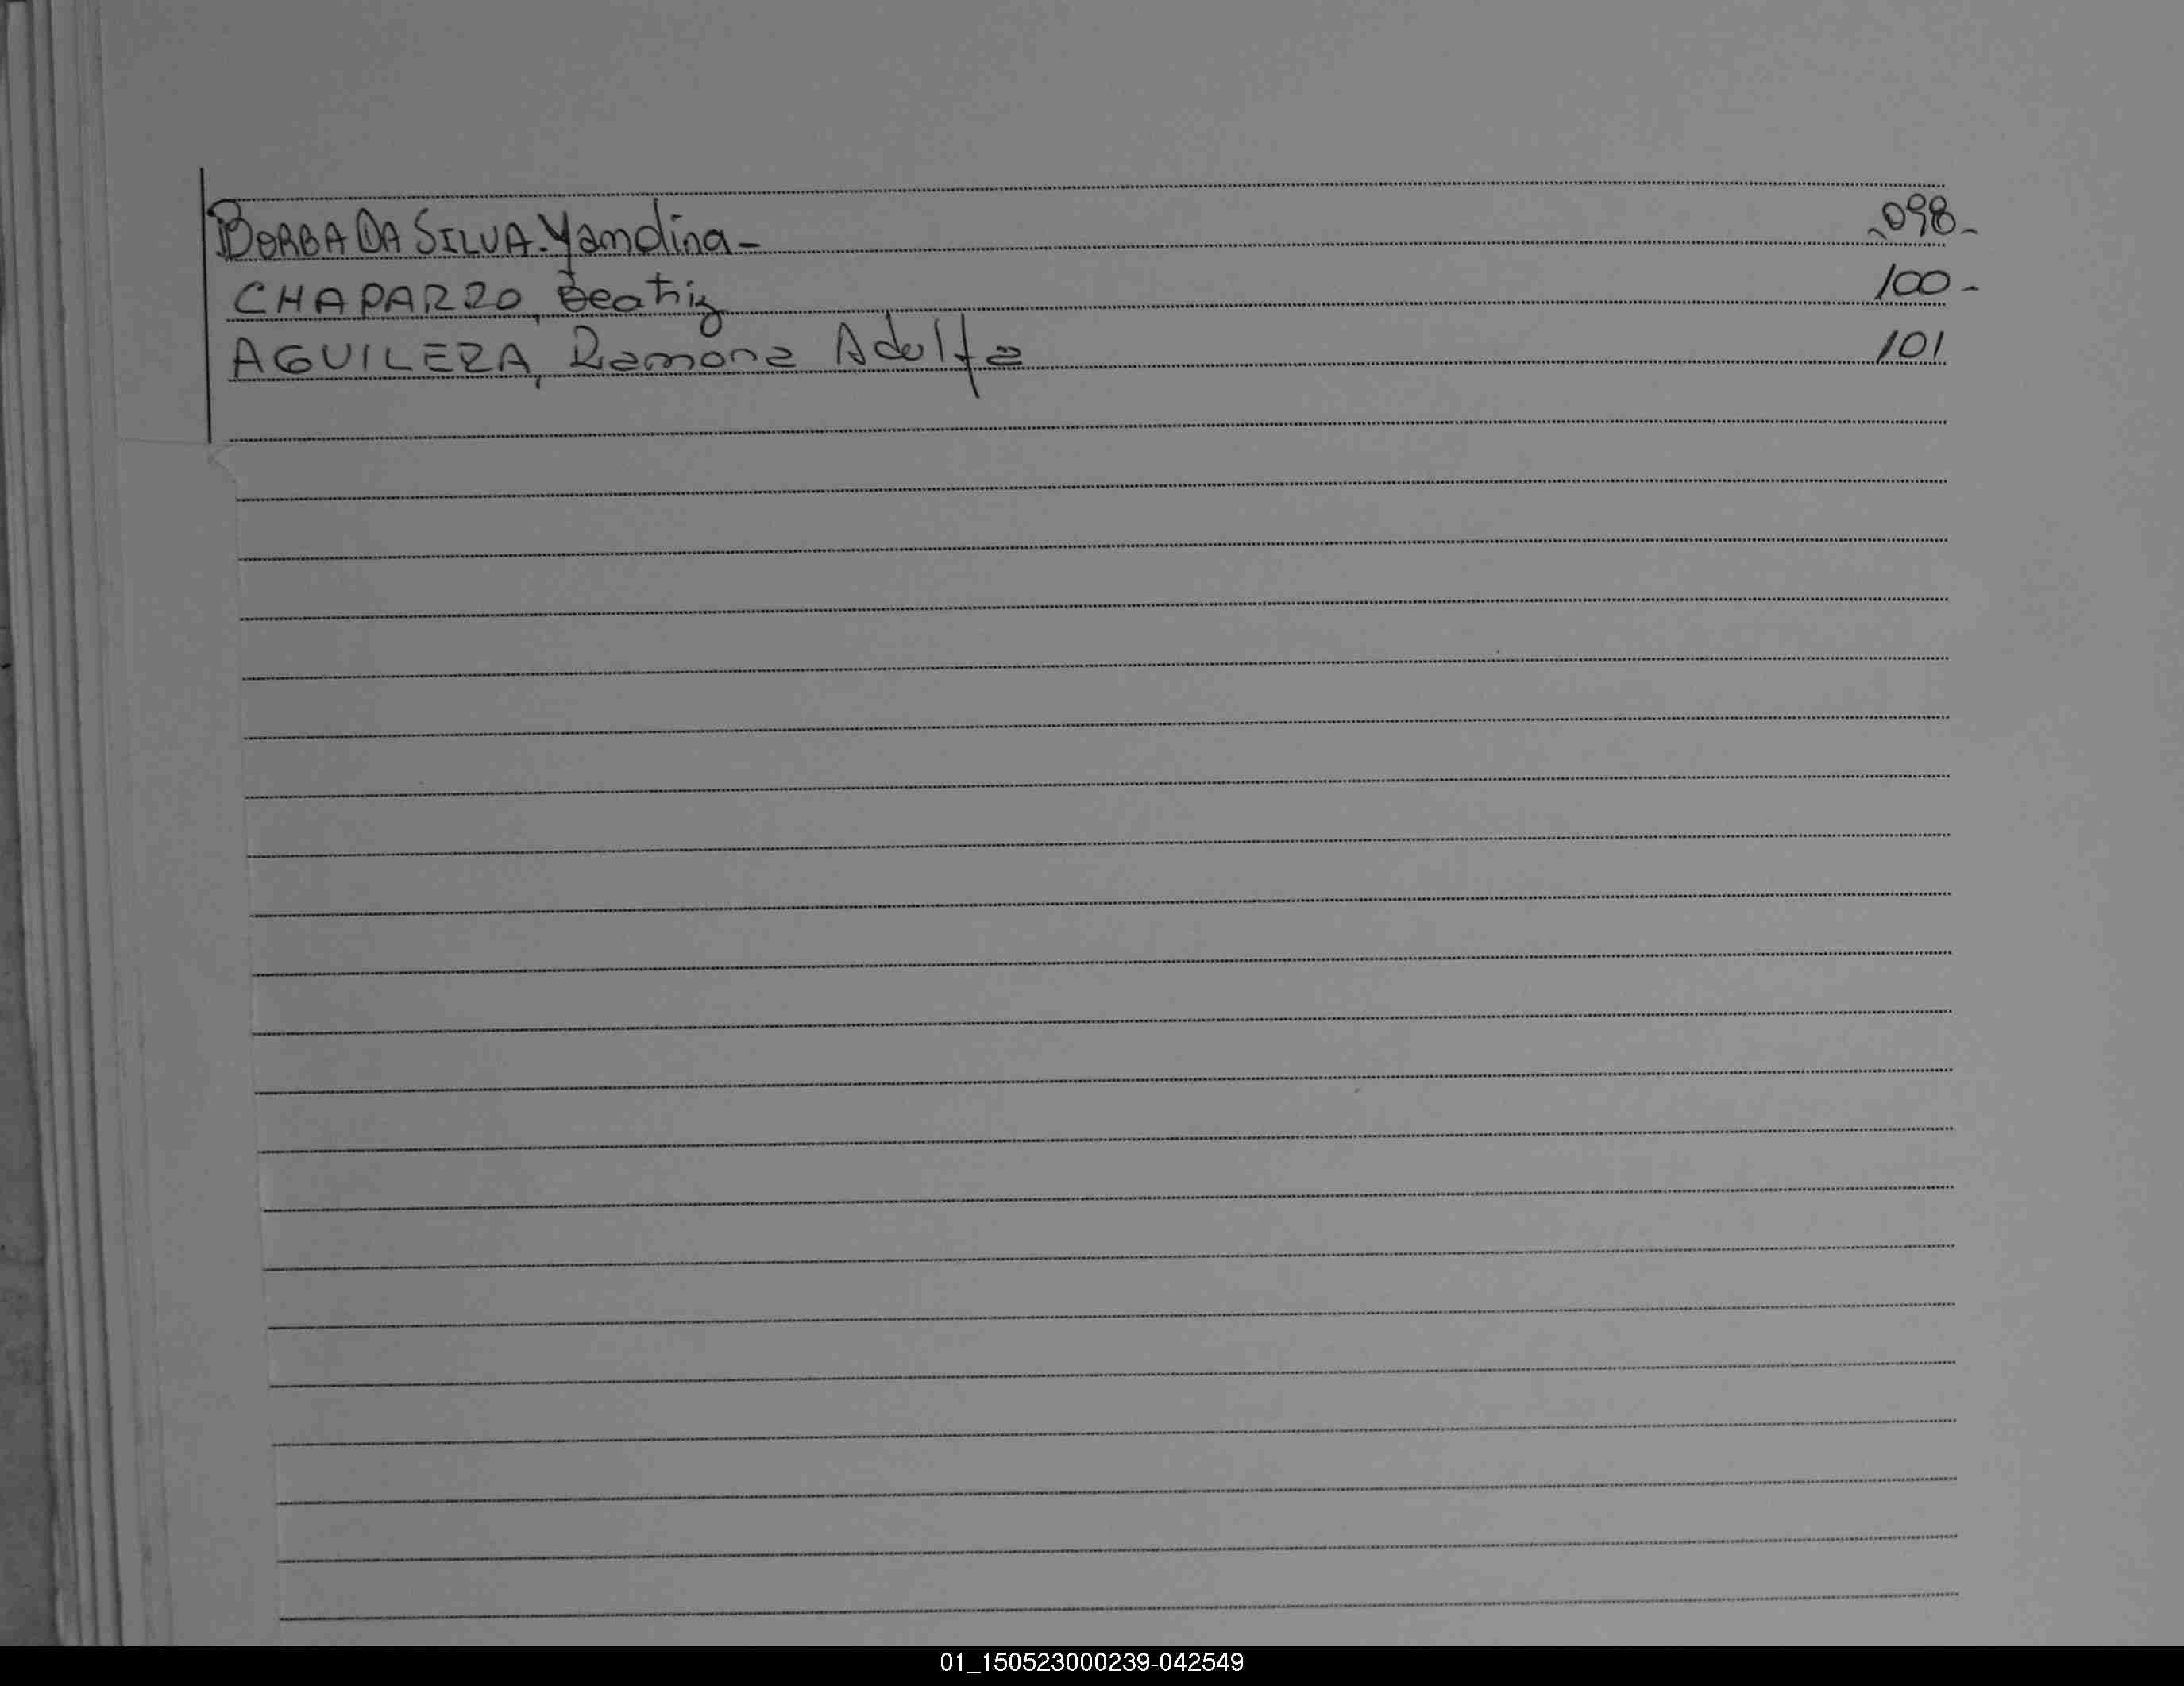 BORBA DA SILVA. Yandina - 098-
CHAPARRO, Beatriz 100-
AGUILERA, Ramona Adolfa 101
01_150523000239-042549